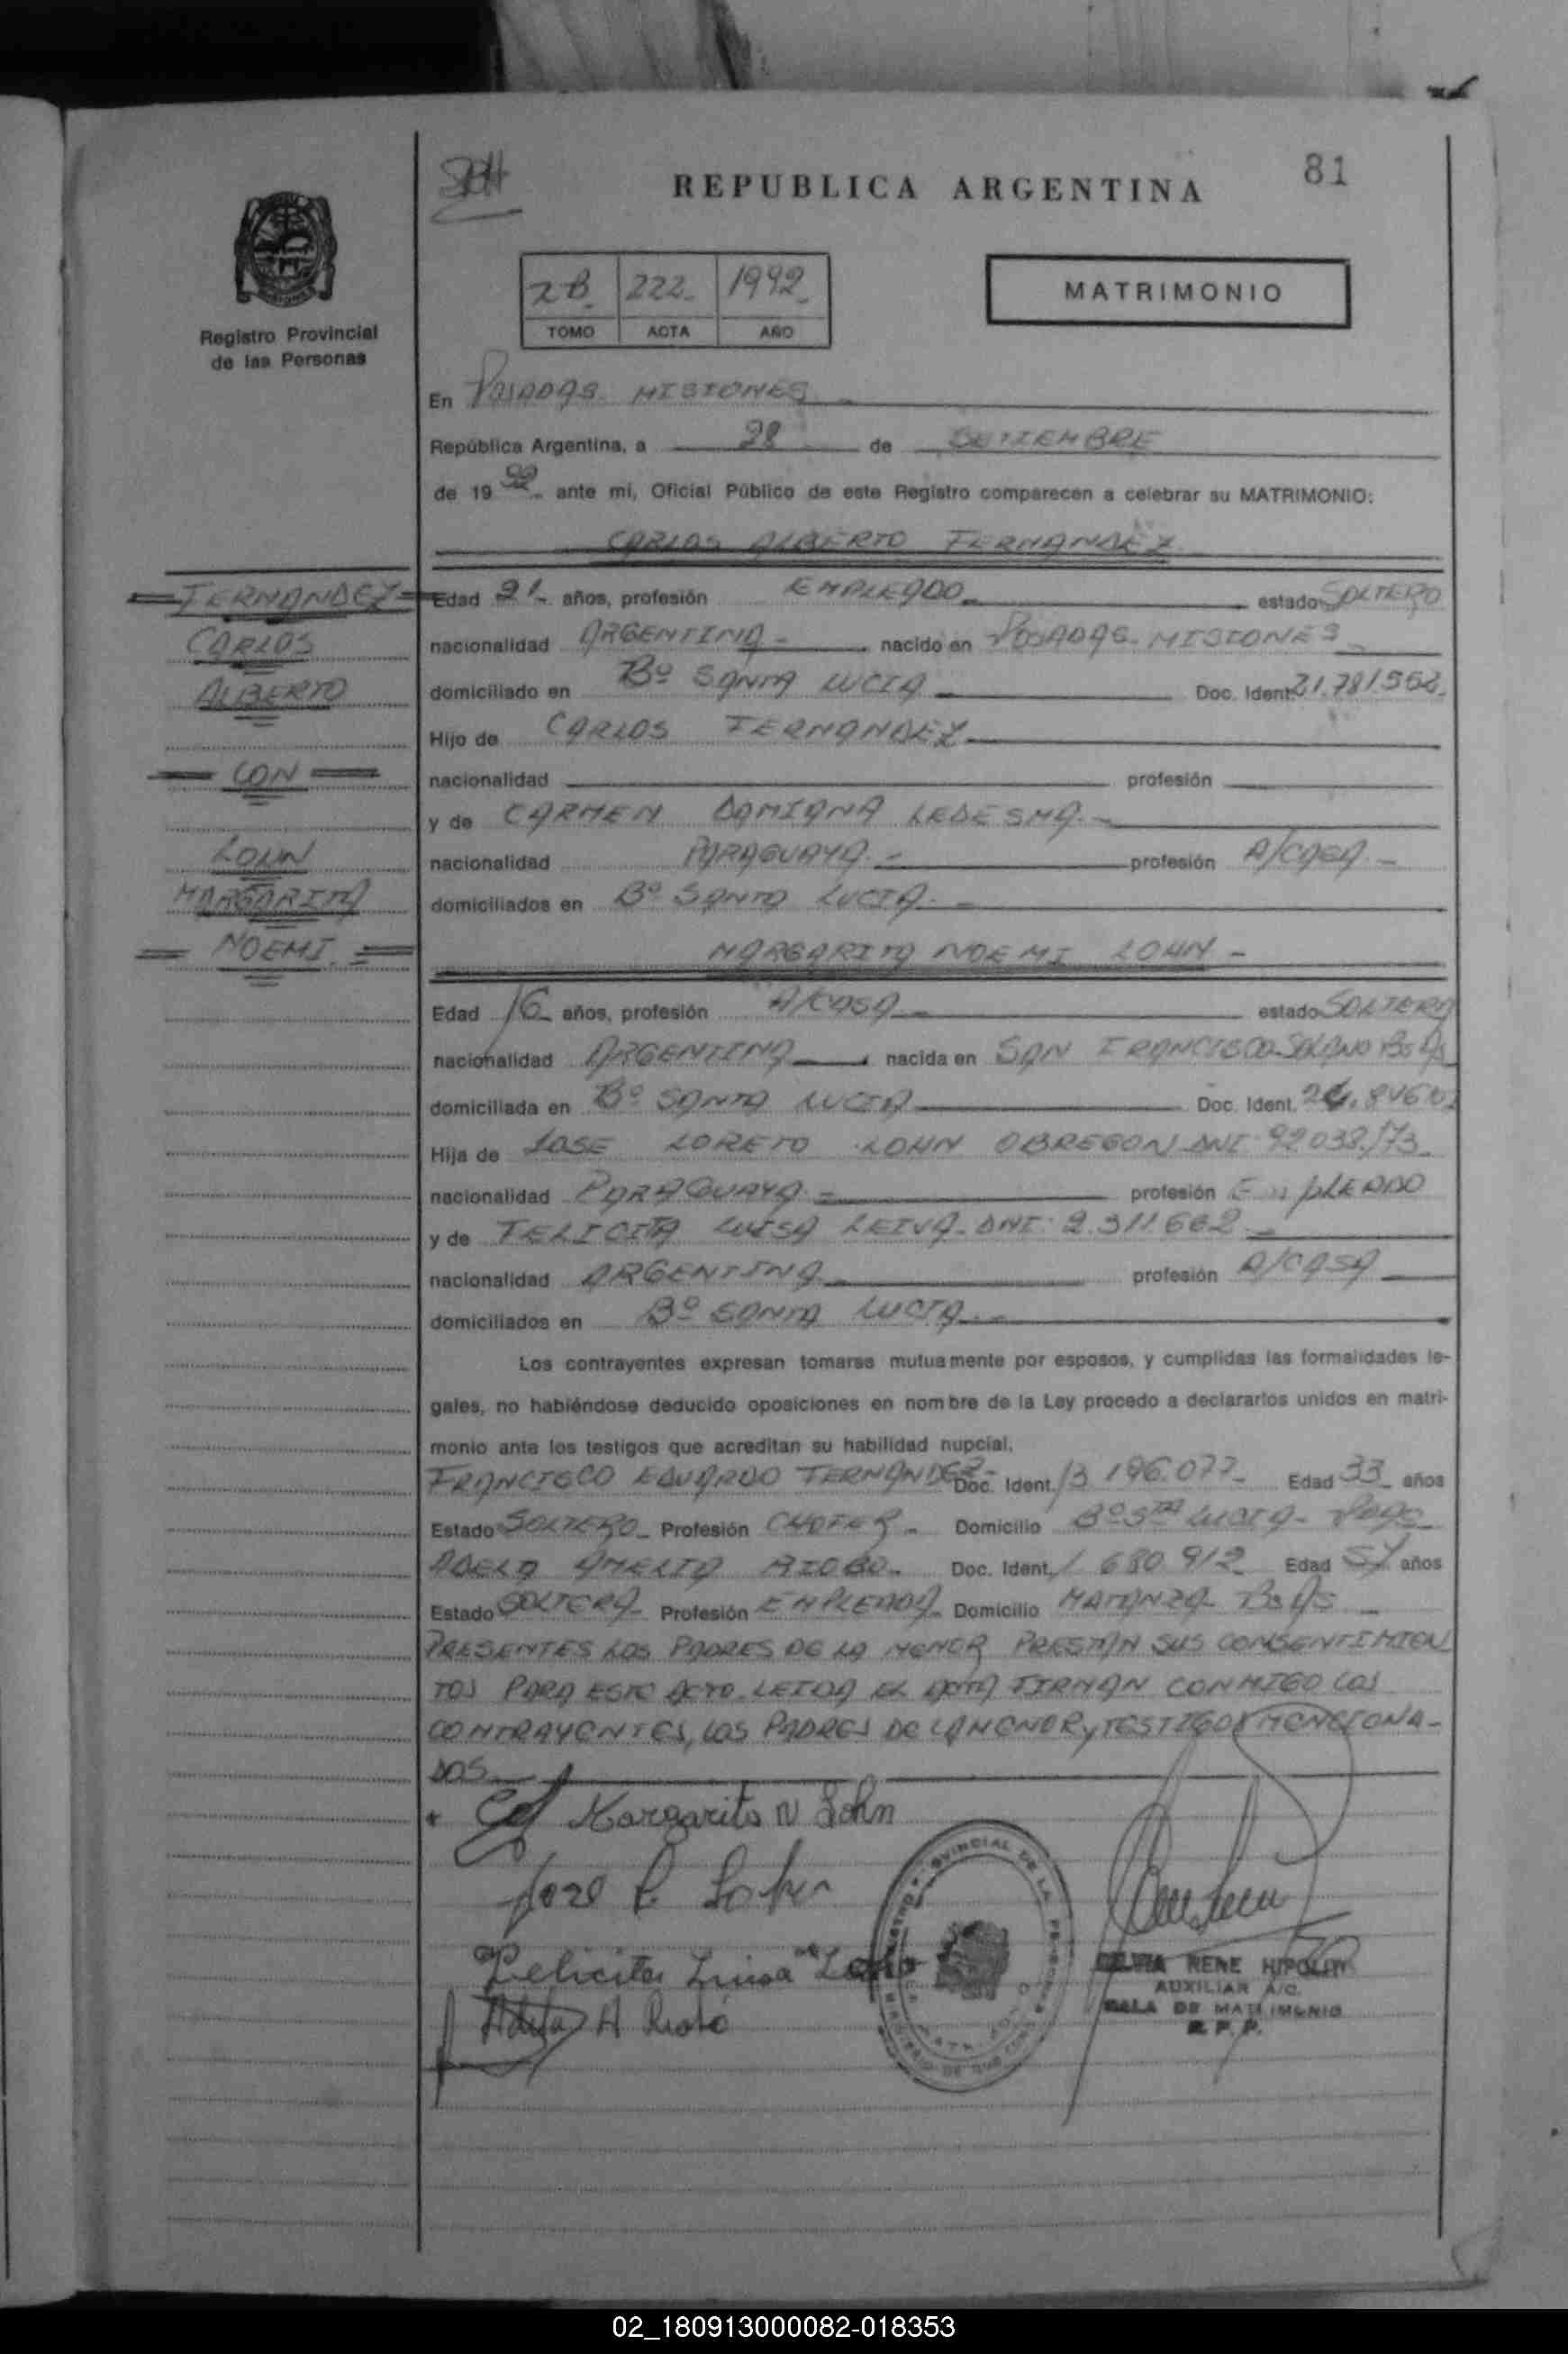 81
REPUBLICA ARGENTINA
2B 222 1992
TOMO ACTA AÑO
MATRIMONIO
Registro Provincial
de las Personas
En POSADAS. MISIONES
República Argentina, a 28 de SETIEMBRE
de 19 92 ante mí, Oficial Público de este Registro comparecen a celebrar su MATRIMONIO:
CARLOS ALBERTO FERNANDEZ
FERNANDEZ
CARLOS
ALBERTO
CON
LOHN
MARGARITA
NOEMI
Edad 21 años, profesión EMPLEADO estado SOLTERO
nacionalidad ARGENTINA nacido en POSADAS. MISIONES
domiciliado en Bº SANTA LUCIA Doc. Ident. 21.781562.
Hijo de CARLOS FERNANDEZ
nacionalidad profesión
y de CARMEN DAMIANA LEDESMA.-
nacionalidad PARAGUAYA.- profesión A/CASA.-
domiciliados en Bº SANTA LUCIA.-
MARGARITA NOEMI LOHN -
Edad 16 años, profesión A/CASA estado SOLTERA
nacionalidad ARGENTINA nacida en SAN FRANCISCO SOLANO Bs As
domiciliada en Bº SANTA LUCIA Doc. Ident.
Hija de JOSE LORETO LOHN OBREGON DNI 92.038.173
nacionalidad PARAGUAYA.- profesión EMPLEADO
y de FELICITA LUISA LEIVA - DNI: 2.311.662
nacionalidad ARGENTINA profesión A/CASA
domiciliados en Bº SANTA LUCIA.-
Los contrayentes expresan tomarse mutuamente por esposos, y cumplidas las formalidades le-
gales, no habiéndose deducido oposiciones en nombre de la Ley procedo a declararlos unidos en matri-
monio ante los testigos que acreditan su habilidad nupcial,
FRANCISCO EDUARDO FERNANDEZ- Doc. Ident. 13 196.077 Edad 33 años
Estado SOLTERO Profesión CHOFER. Domicilio Bº Sta LUCIA - Pdas
ADELA AMELIA RIOBO. Doc. Ident. 1 680 912 Edad 54 años
Estado SOLTERA Profesión EMPLEADA Domicilio MATANZA Bs As
PRESENTES LOS PADRES DE LA MENOR PRESTAN SUS CONSENTIMIEN
TOS PARA ESTE ACTO. LEIDA EL ACTA FIRMAN CONMIGO LOS
CONTRAYENTES, LOS PADRES DE LA MENOR y TESTIGOS MENCIONA-
DOS
Margarita N Lohn
Jose L Lohn
Felicita Luisa
Adela A Riobó
RENE HIPOLITO
AUXILIAR A/C.
SALA DE MATRIMONIO
R. P. P.
02_180913000082-018353